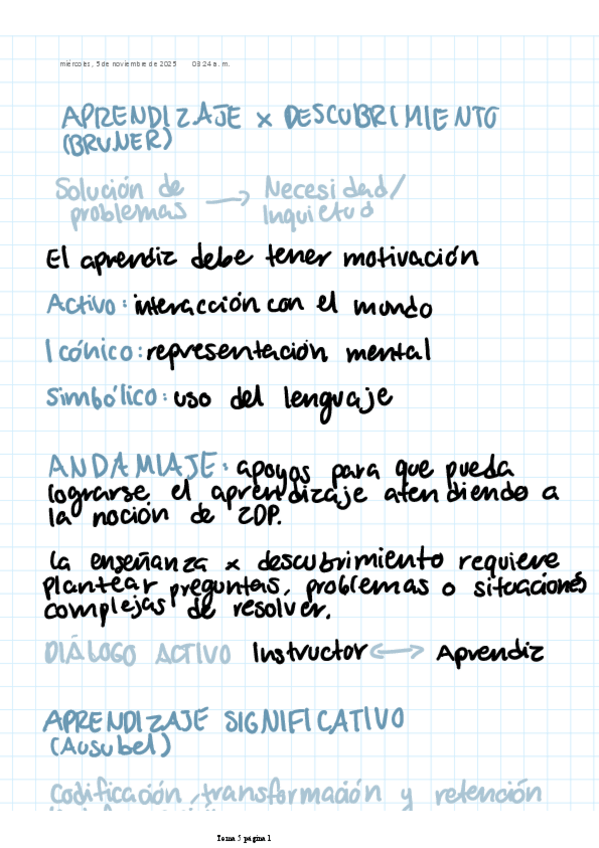 miércoles, 5 de noviembre de 2025 03:24 a. m.
APRENDIZAJE x DESCUBRIMIENTO
(BRUNER)
Solución de problemas → Necesidad/Inquietud
El aprendiz debe tener motivación
Activo: interacción con el mundo
Icónico: representación mental
Simbólico: uso del lenguaje
ANDAMIAJE: apoyos para que pueda
lograrse el aprendizaje atendiendo a
la noción de ZDP.
La enseñanza x descubrimiento requiere
plantear preguntas, problemas o situaciones
complejas de resolver.
DIÁLOGO ACTIVO Instructor ↔ Aprendiz
APRENDIZAJE SIGNIFICATIVO
(Ausubel)
Codificación, transformación y retención
Tema 5 página 1